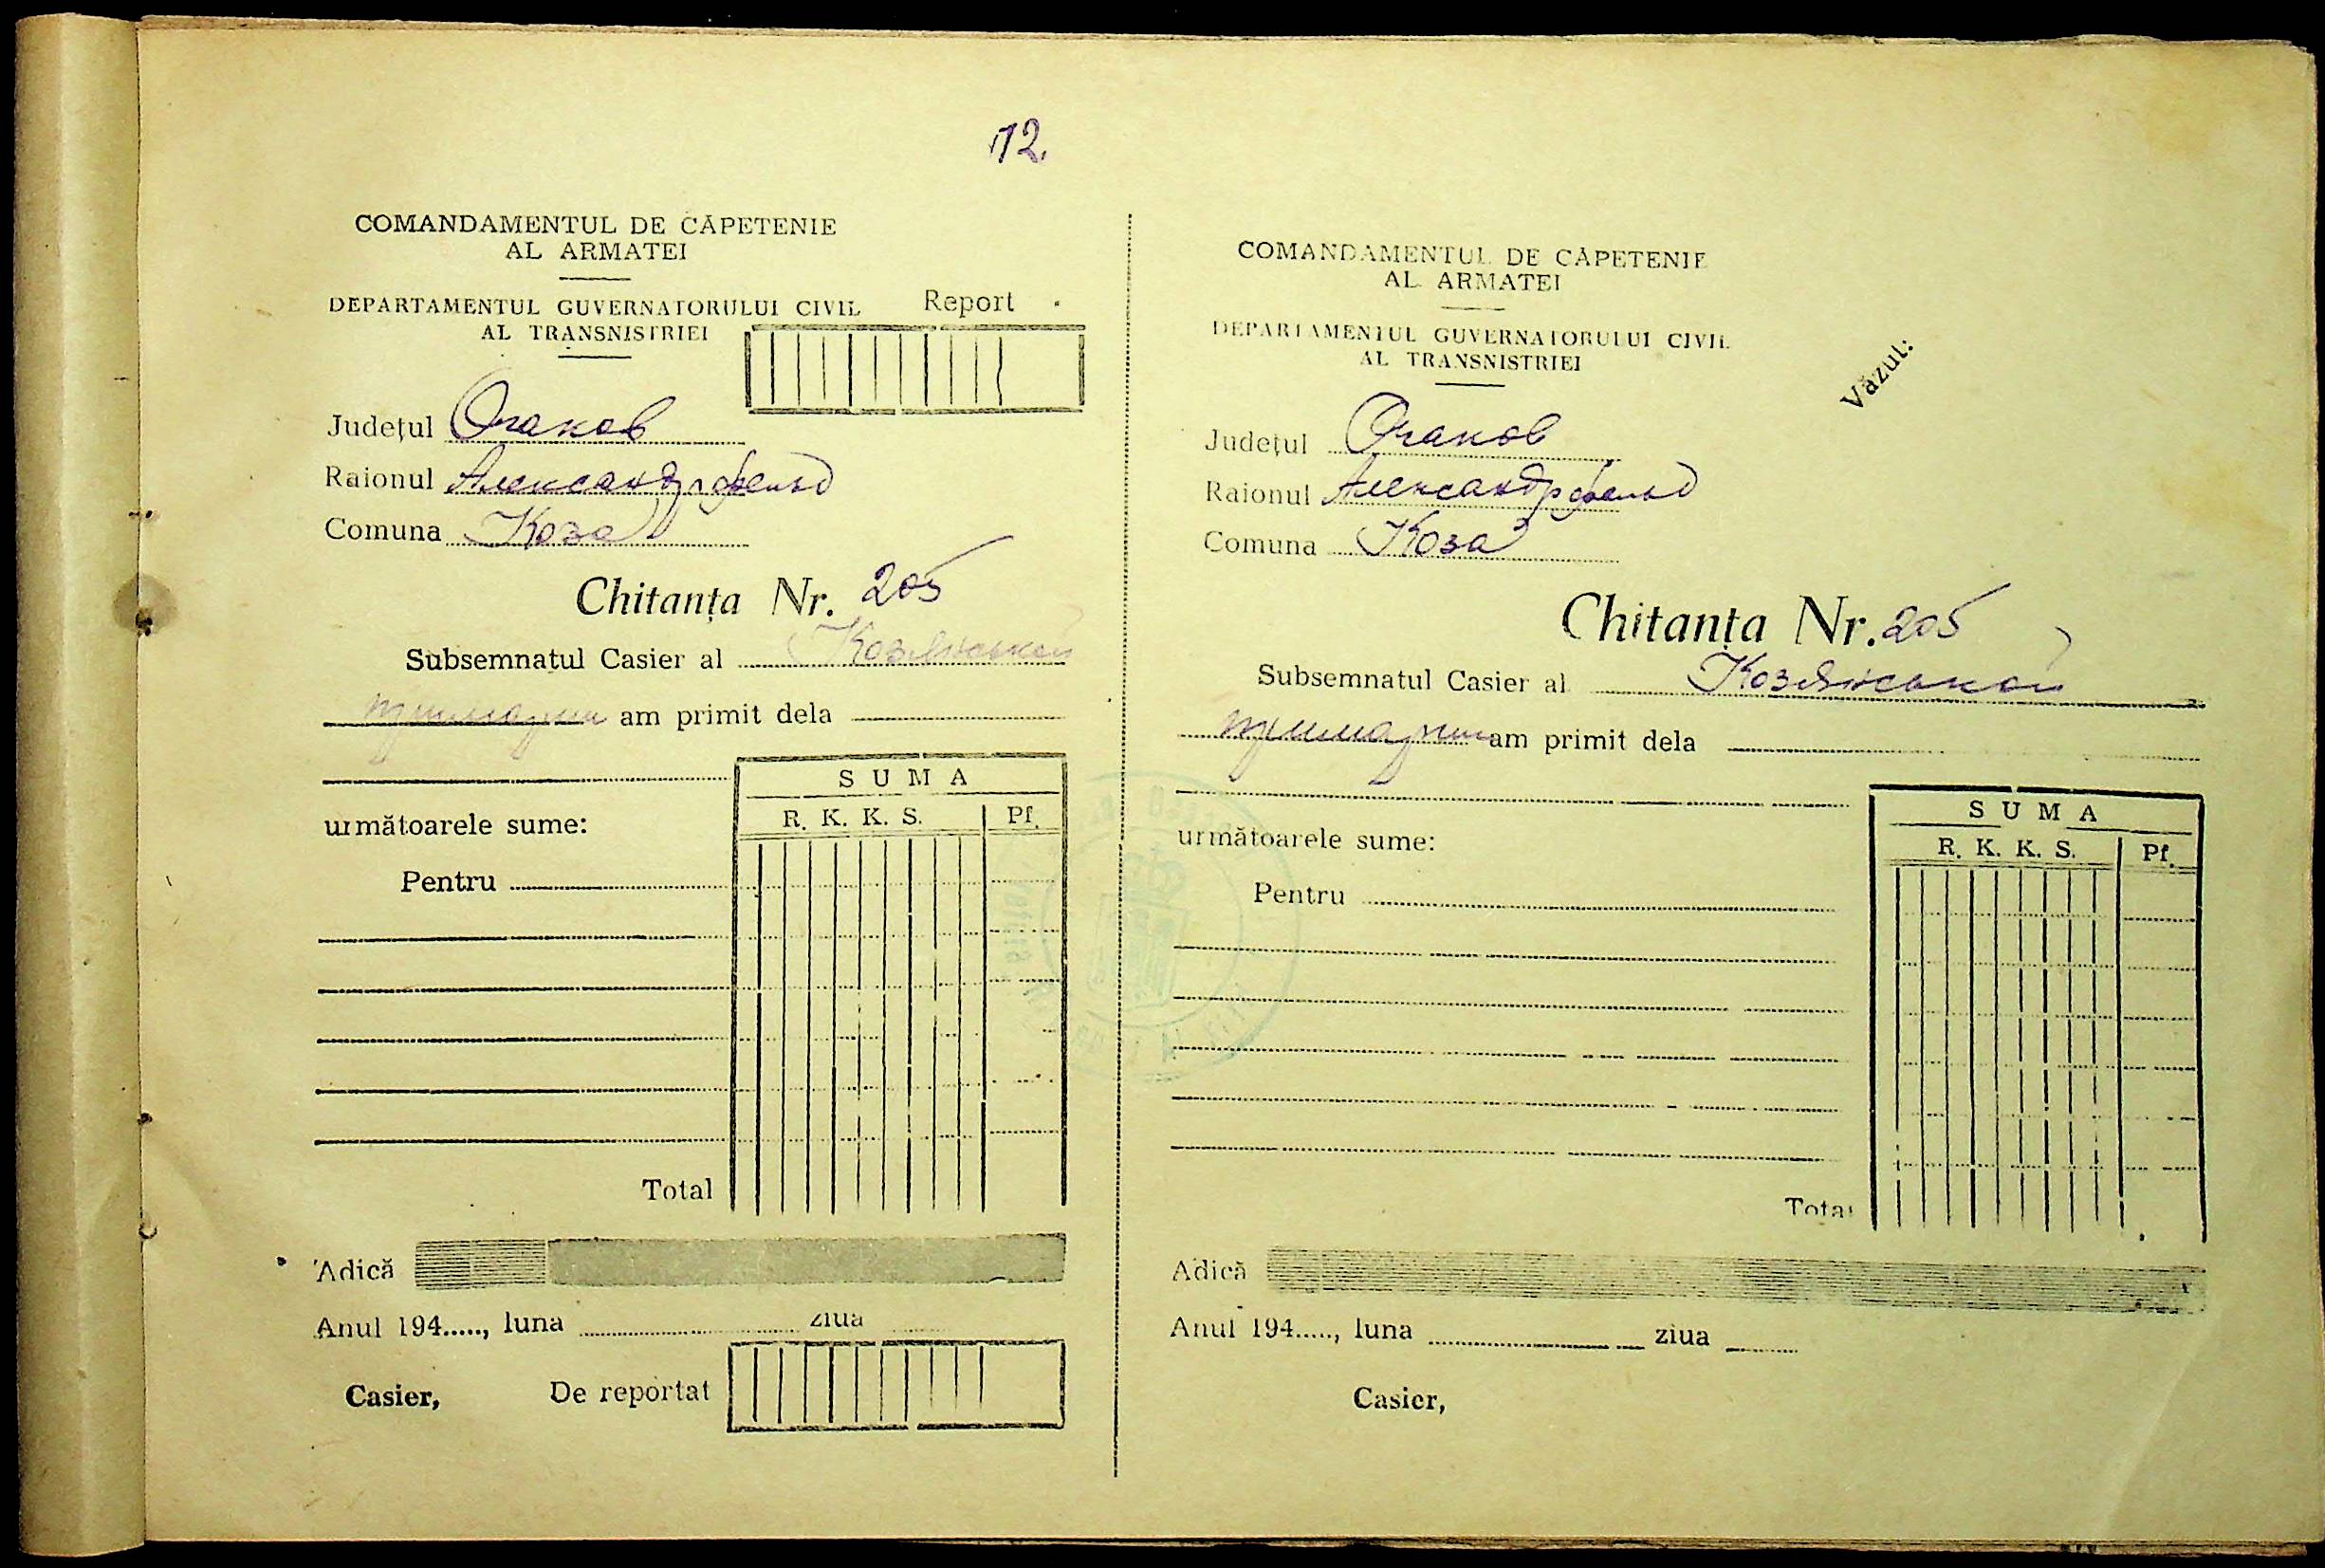 12.
COMANDAMENTUL DE CĂPETENIE
AL ARMATEI
DEPARTAMENTUL GUVERNATORULUI CIVIL
AL TRANSNISTRIEI
Report
Județul Очаков
Raionul Александрфельд
Comuna Коза
Chitanța Nr. 205
Subsemnatul Casier al Козлянськой
примарии am primit dela
SUMA
R. K. K. S. Pf.
următoarele sume:
Pentru
Total
Adică
Anul 194....., luna ziua
Casier, De reportat
COMANDAMENTUL DE CĂPETENIE
AL ARMATEI
DEPARTAMENTUL GUVERNATORULUI CIVIL
AL TRANSNISTRIEI
Văzut:
Județul Очаков
Raionul Александрфельд
Comuna Коза
Chitanța Nr. 205
Subsemnatul Casier al Козлянськой
примарии am primit dela
SUMA
R. K. K. S. Pf.
următoarele sume:
Pentru
Total
Adică
Anul 194....., luna ziua
Casier,